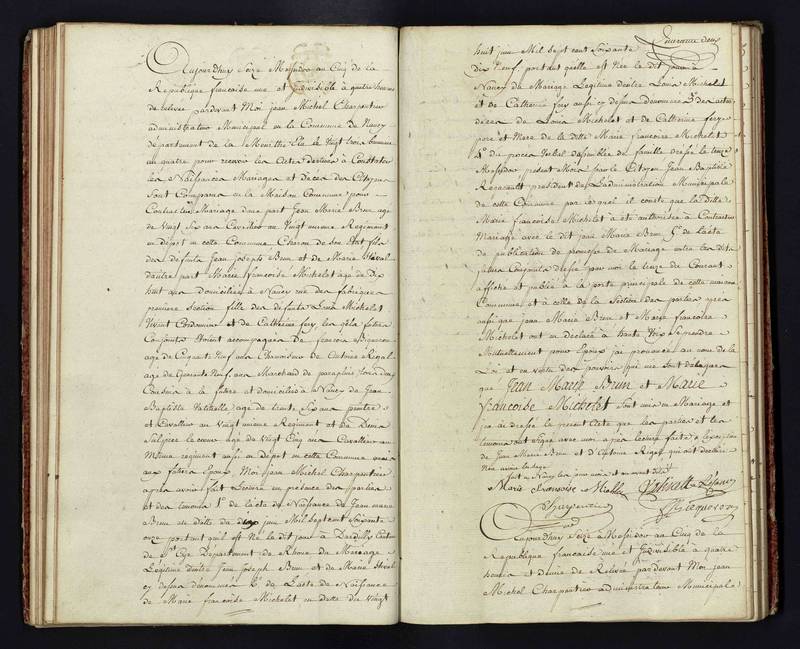 Aujourdhuy Seize Messidor au Cinq de la
Republique francaise une et indivisible à quatre heures
de relevée pardevant Moi jean Michel Charpentier
administrateur Municipal de la Commune de Nancy
département de la Meurthe Elu le Vingt trois
an quatre pour recevoir les Actes destinés à Constater
les Naissances Mariages et Décès des Citoyens
Sont Comparus en la Maison Commune pour
Contracter Mariage d'une part Jean Marie Brun agé
de Vingt Six ans Cavallier au Vingt unieme Regiment
en dépot en cette Commune Charon de Son Etat fils
des défunts jean joseph Brun et de Marie
dautre part Marie francoise Michelet agée de Dix
huit ans domiciliée à Nancy rue des fabriques
premiere Section fille des défunts Louis Michelet
Vivant Cordonnier et de Catherine fery, lesquels futurs
Conjoints étoient accompagnés de francois
agé de Cinquante Neuf ans Chamoiseur de Antoine Rigal
agé de Quarante Neuf ans Marchand de parapluies tous deux
Cousins à la future et domiciliés à Nancy de Jean
Baptiste agé de trente Six ans peintre
et Cavallier au Vingt unieme Regiment et de Denis
Sulpice agé de Vingt Cinq ans Cavallier au
Meme regiment aussi en dépot en cette Commune amis
aux futurs Epoux. Moi jean Michel Charpentier
après avoir fait Lecture en presence des parties
et des temoins 1° de lacte de Naissance de Jean marie
Brun en datte du juin Mil Sept cent Soixante
onze portant quil est Né le dit jour à Dardilly Canton
de St Cyr Departement de Rhone du Mariage
Légitime dentre jean joseph Brun et de Marie
cy dessus dénommés 2° de Lacte de Naissance
de Marie francoise Michelet en datte du Vingt
quarante deux
huit juin Mil Sept cent Soixante
Dix Neuf portant quelle est Née le dit jour à
Nancy du Mariage Légitime dentre Louis Michelet
et de Catherine fery aussi cy dessus denommés 3° des actes
de décès de Louis Michelet et de Catherine fery
pere et Mere de la ditte Marie francoise Michelet
4° du procès verbal dassemblée de famille dressé le treize
Messidor present Mois par le Citoyen Jean Baptiste
president de L'administration Municipale
de cette Commune par lequel il conste que la ditte
Marie francoise Michelet a été autorisée à Contracter
Mariage avec le dit jean Marie Brun 5° de lacte
de publication de promesse de Mariage entre les dits
futurs Conjoints dressé par moi le treize du Courant
affiché et publié à la porte principale de cette maison
Commune et à celle de la Section des parties après
aussi que jean Marie Brun et Marie francoise
Michelet ont eu déclaré à haute Voix Se prendre
Mutuellement pour Epoux j'ai prononcé au nom de la
Loi et en vertu des pouvoirs qui me sont délégués
que Jean Marie Brun et Marie
Francoise Michelet Sont unis en Mariage et
j'ai dressé le present Acte que les parties et les
temoins ont signé avec moi après lecture faite à lexception
de Jean Marie Brun et d'Antoine Rigal qui ont déclaré
Nen avoir lusage
fait à Nancy les jour mois et an avant dits
Marie francoise Michlet
Charpentier
Aujourdhuy Seize Messidor au Cinq de la
Republique francaise une et indivisible à quatre
heures et demie de Relevée pardevant Moi jean
Michel Charpentier administrateur Municipale